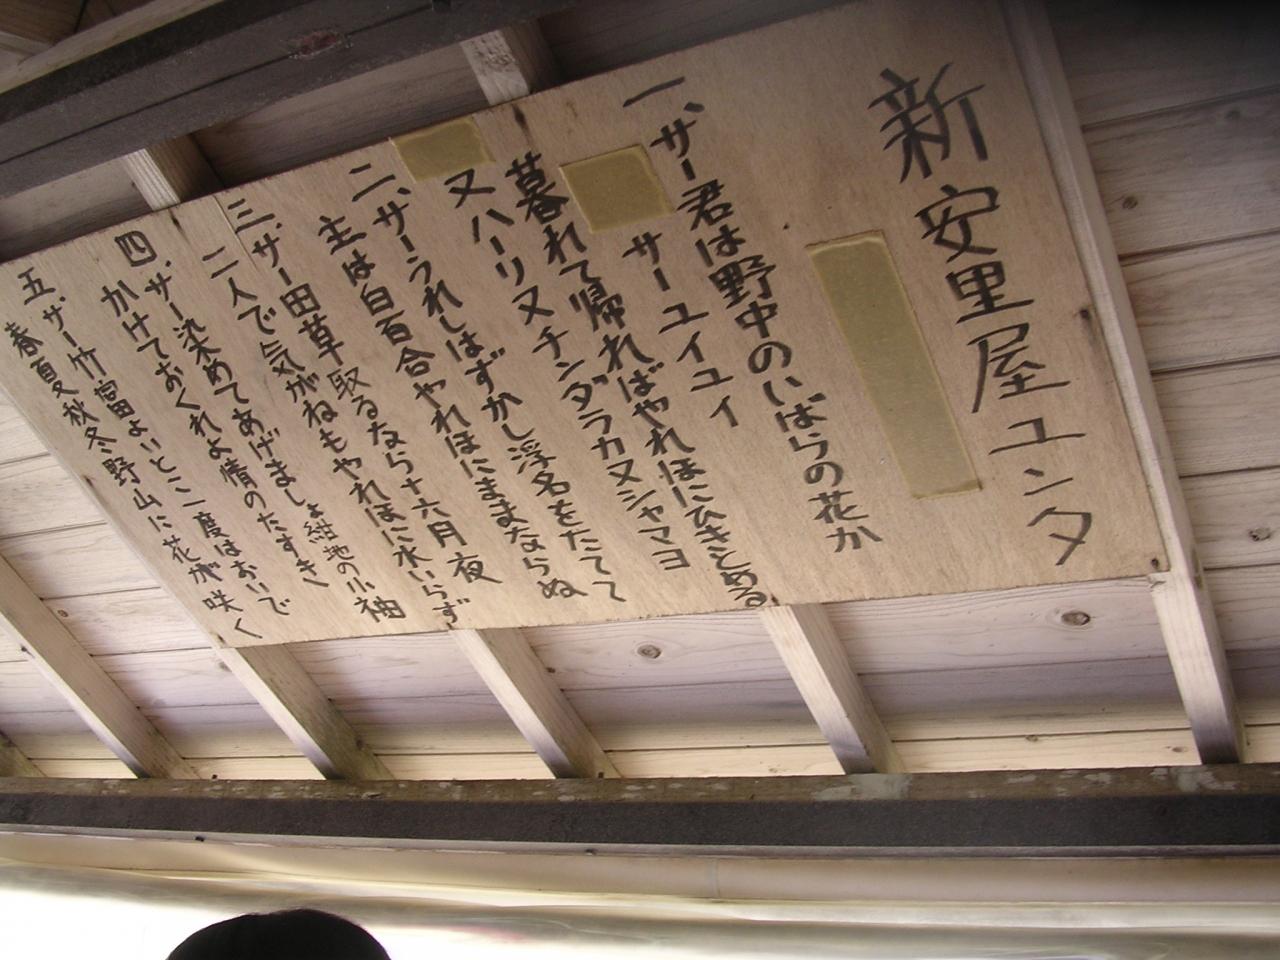 新安里屋ユンタ
一、サー君は野中のいばらの花か
サーユイユイ
暮れて帰ればやれほにひきとめる
又ハーリヌチンダラカヌシャマヨ
二、サーうれしはずかし浮名をたてて
主は白百合やれほにままならぬ
三、サー田草取るなら十六月夜
二人で気がねもやれほに水いらず
四、サー染めてあげましょ紺地の小袖
かけておくれよ情のたすきく
五、サー竹富よいとこ一度はおいで
春夏秋冬野山に花が咲く